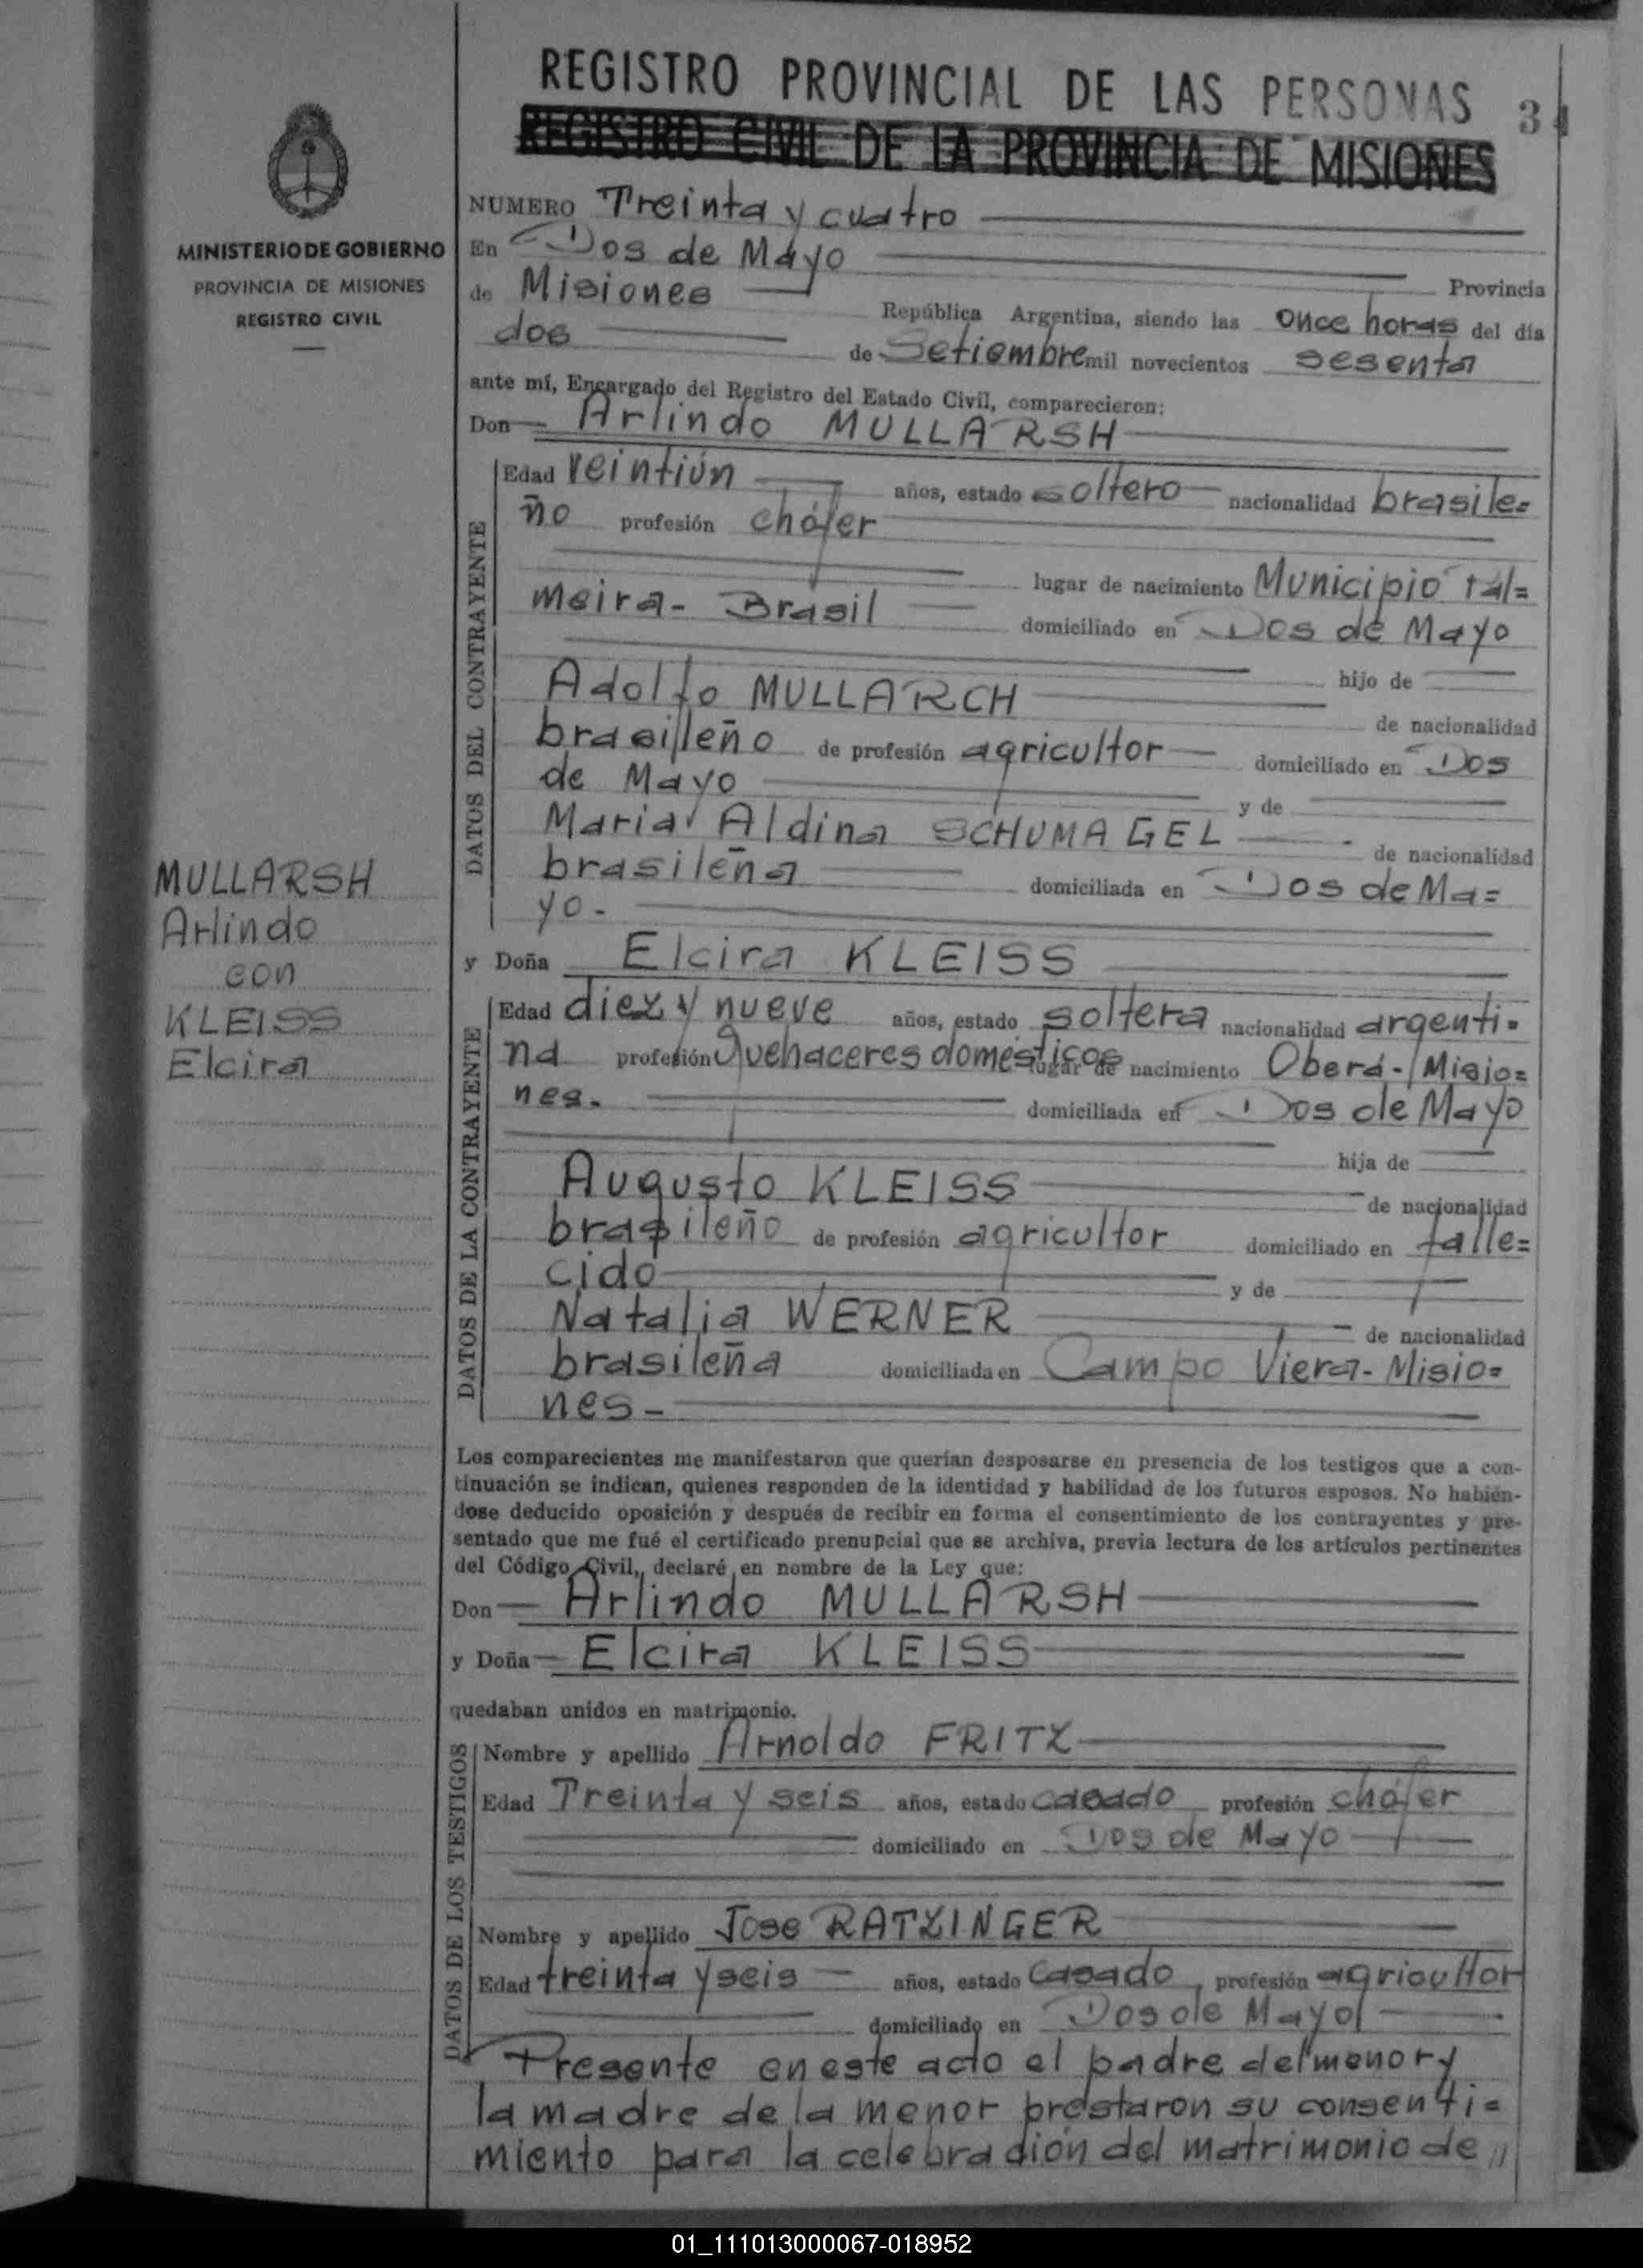 REGISTRO PROVINCIAL DE LAS PERSONAS
34
REGISTRO CIVIL DE LA PROVINCIA DE MISIONES
MINISTERIO DE GOBIERNO
PROVINCIA DE MISIONES
REGISTRO CIVIL
NUMERO Treinta y cuatro
En Dos de Mayo
Provincia
de Misiones
República Argentina, siendo las once horas del día
dos
de Setiembre mil novecientos sesenta
ante mí, Encargado del Registro del Estado Civil, comparecieron:
Don Arlindo MULLARSH
DATOS DEL CONTRAYENTE
Edad veintiún años, estado soltero nacionalidad brasile=
ño profesión chófer
lugar de nacimiento Municipio Pal=
meira- Brasil
domiciliado en Dos de Mayo
hijo de
Adolfo MULLARCH
de nacionalidad
brasilleño de profesión agricultor domiciliado en Dos
de Mayo
y de
Maria Aldina SCHUMAGEL
de nacionalidad
brasileña domiciliada en Dos de Ma=
yo-
MULLARSH
Arlindo
con
KLEISS
Elcira
y Doña Elcira KLEISS
DATOS DE LA CONTRAYENTE
Edad diez y nueve años, estado soltera nacionalidad argenti=
na profesión Quehaceres domésticos lugar de nacimiento Oberá-Misio=
nes.
domiciliada en Dos de Mayo
hija de
Augusto KLEISS
de nacionalidad
brasileño de profesión agricultor domiciliado en falle=
cido
y de
Natalia WERNER
de nacionalidad
brasileña domiciliada en Campo Viera-Misio=
nes-
Los comparecientes me manifestaron que querían desposarse en presencia de los testigos que a con-
tinuación se indican, quienes responden de la identidad y habilidad de los futuros esposos. No habién-
dose deducido oposición y después de recibir en forma el consentimiento de los contrayentes y pre-
sentado que me fué el certificado prenupcial que se archiva, previa lectura de los artículos pertinentes
del Código Civil, declaré en nombre de la Ley que:
Don Arlindo MULLARSH
y Doña Elcira KLEISS
quedaban unidos en matrimonio.
DATOS DE LOS TESTIGOS
Nombre y apellido Arnoldo FRITZ
Edad Treinta y seis años, estado casado profesión chófer
domiciliado en Dos de Mayo
Nombre y apellido Jose RATZINGER
Edad treinta y seis años, estado casado, profesión agricultor
domiciliado en Dos de Mayo
Presente en este acto el padre del menor y
la madre de la menor prestaron su consenti=
miento para la celebración del matrimonio de //
01_111013000067-018952